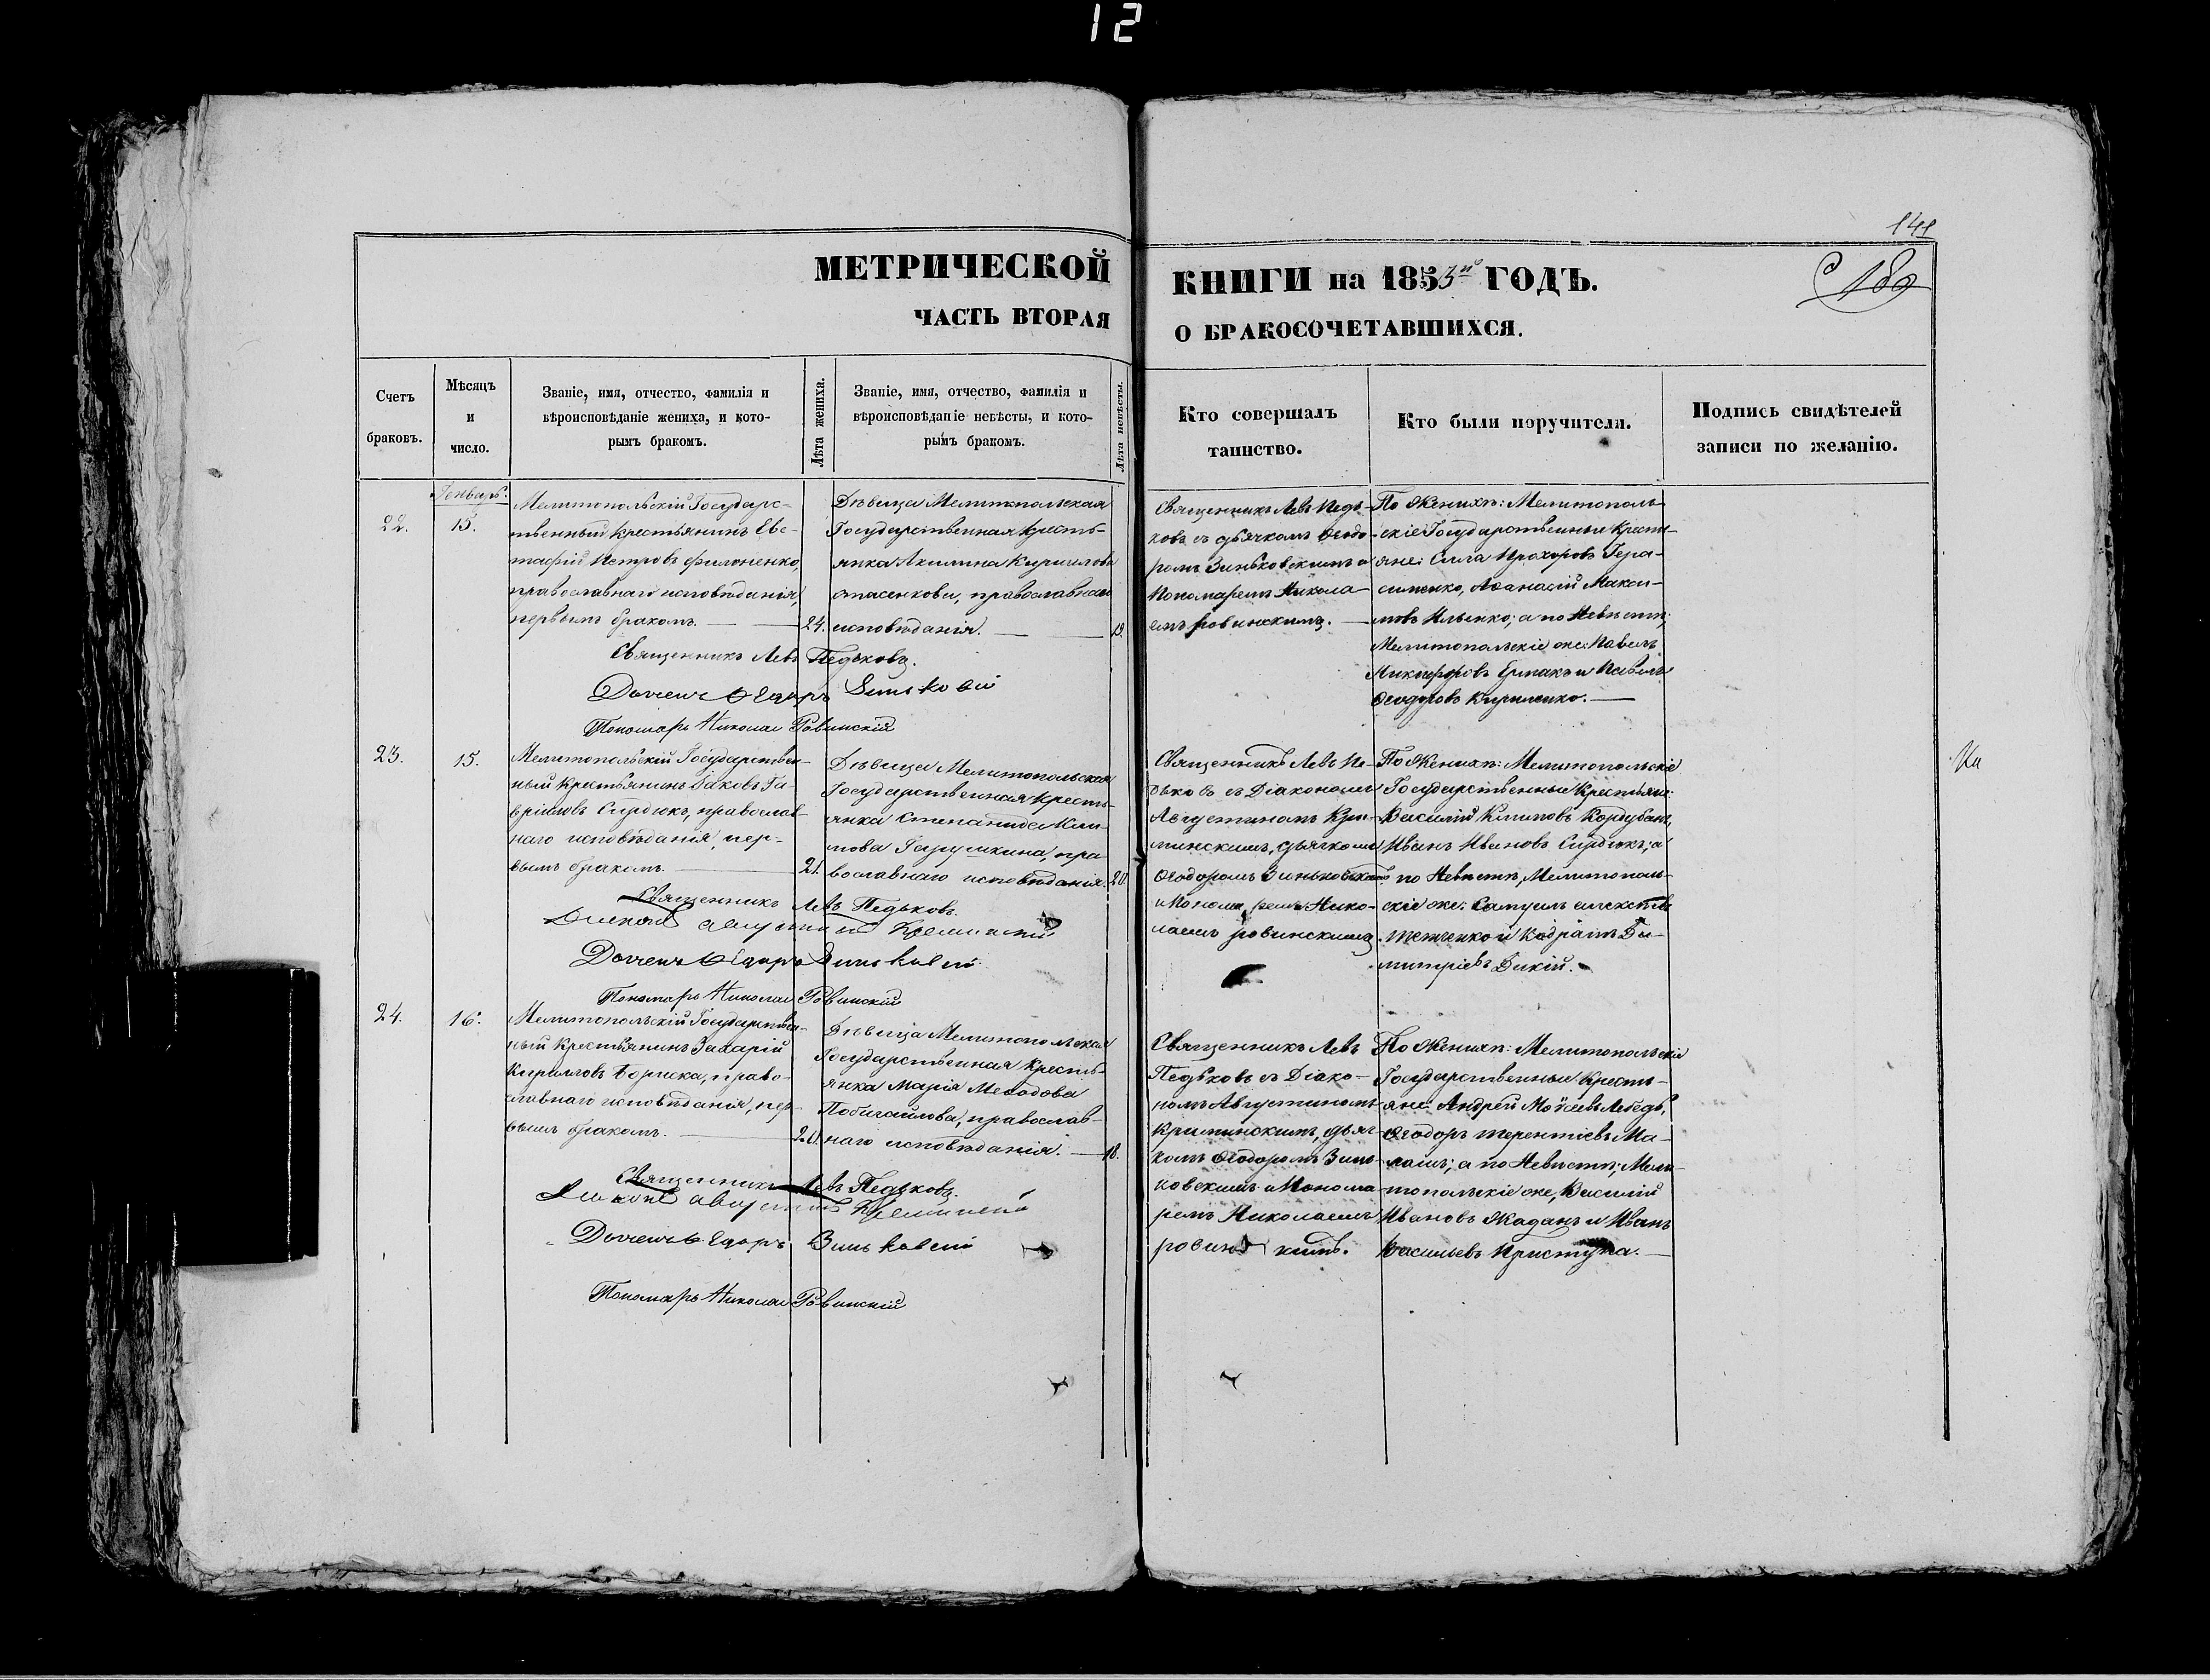 12
141
180
МЕТРИЧЕСКОЙ КНИГИ на 1853й ГОДЪ.
ЧАСТЬ ВТОРАЯ О БРАКОСОЧЕТАВШИХСЯ.
Счетъ браковъ.
Мѣсяцъ и число.
Званіе, имя, отчество, фамилія и
вѣроисповѣданіе жениха, и кото-
рымъ бракомъ.
Лѣта жениха.
Званіе, имя, отчество, фамилія и
вѣроисповѣданіе невѣсты, и кото-
рымъ бракомъ.
Лѣта невѣсты.
Кто совершалъ
таинство.
Кто были поручители.
Подпись свидѣтелей
записи по желанію.
Генварь.
22.
15.
Мелитопольскій Государс-
твенный крестьянинъ Евс-
тафій Петровъ Филоненко,
православнаго исповѣданія,
первымъ бракомъ.
24.
Дѣвица Мелитопольская
Государственная кресть-
янка Акилина Кириллова
православнаго
исповѣданія.
19.
Священникъ Левъ Педь-
ковъ съ дьячкомъ Ѳеодо-
ромъ Зиньковскимъ и
Пономаремъ Никола-
емъ Ровинскимъ.
По Женихѣ: Мелитополь-
скіе Государственные Кресть-
яне: Сила Прохоровъ Гера-
сименко, Аѳанасій Макси-
мовъ Ильенко; а по Невѣстѣ;
Мелитопольскіе же: Павелъ
Никифоровъ Ермакъ и Павелъ
Ѳеодоровъ Кириленко.
Священникъ Левъ Педьковъ.
Дьячекъ Егоръ Зиньковскій
Пономарь Николай Ровинскій
23.
15.
Мелитопольскій Государствен-
ный Крестьянинъ Іаковъ Га-
вріиловъ Сирдюкъ, православ-
наго исповѣданія, пер-
вымъ бракомъ.
21.
Дѣвица Мелитопольская
Государственная кресть-
янка Степанида Кли-
мова православнаго исповѣданія.
20.
Священникъ Левъ Пе-
дьковъ съ Діакономъ
Августиномъ Кри-
минскимъ, дьячкомъ
Ѳеодоромъ Зиньковскимъ
и Пономаремъ Нико-
лаемъ Ровинскимъ.
По Женихѣ: Мелитопольскіе
Государственные Крестьяне:
Василій Климовъ Кордубанъ,
Иванъ Ивановъ Сирдюкъ; а
по Невѣстѣ, Мелитополь-
скіе же: Самуилъ
и Кодратъ Ди-
митріевъ Дикій.
Священникъ Левъ Педьковъ.
Дьячекъ Егоръ Зиньковскій
Пономарь Николай Ровинскій
24.
16.
Мелитопольскій Государствен-
ный Крестьянинъ Захарій
Кирилловъ Бориска, право-
славнаго исповѣданія, пер-
вымъ бракомъ.
20.
Дѣвица Мелитопольская
Государственная Кресть-
янка Марія Меѳодова
православ-
наго исповѣданія.
18.
Священникъ Левъ
Педьковъ съ Діако-
номъ Августиномъ
Криминскимъ, дьяч-
комъ Ѳеодоромъ Зинь-
ковскимъ и Понома-
ремъ Николаемъ
Ровинскимъ.
По Женихѣ: Мелитопольскіе
Государственные Кресть-
яне: Андрей Моисеевъ Лебедь,
Ѳеодоръ Терентіевъ Ма-
лашъ; а по Невѣстѣ; Мели-
топольскіе же, Василій
Ивановъ Жаданъ и Иванъ
Васильевъ Приступа.
Священникъ Левъ Педьковъ.
Дьячекъ Егоръ Зиньковскій
Пономарь Николай Ровинскій